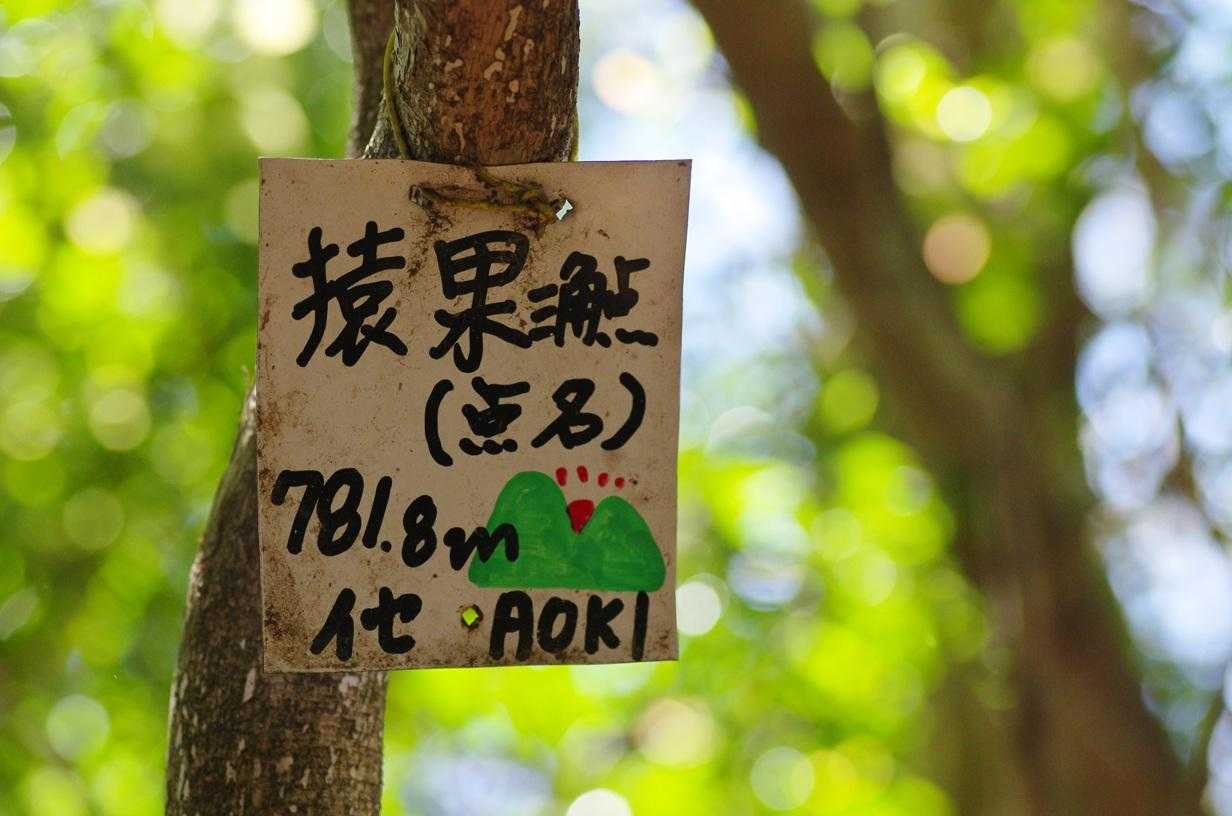 猿果
(点名)
781.8m
イセ AOKI